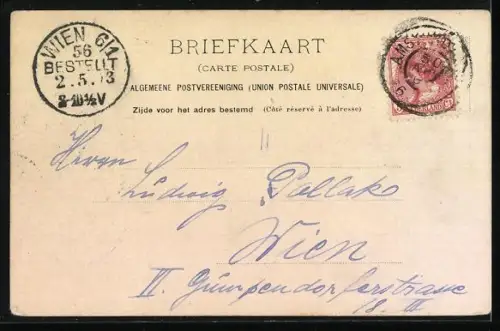 WIEN 6/1
56
BESTELLT
2.5.03
8-10½V
BRIEFKAART
(CARTE POSTALE)
ALGEMEENE POSTVEREENIGING (UNION POSTALE UNIVERSELLE)
Zijde voor het adres bestemd (Côté réservé à l'adresse)
Herrn
Ludwig Pollak
Wien
Gumpendorferstrasse